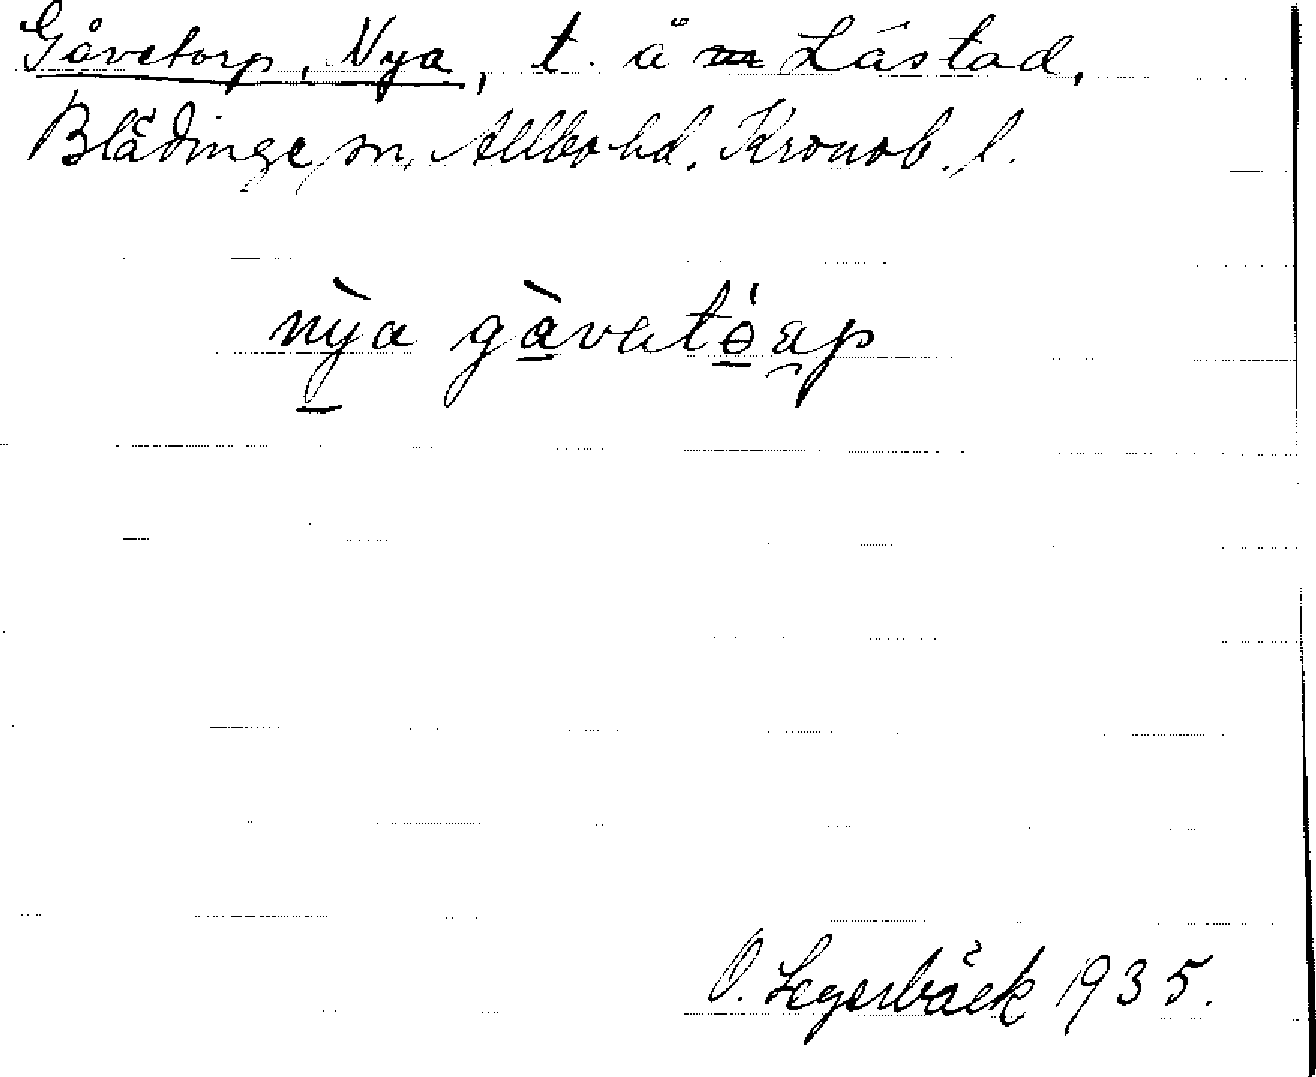 Gåvetorp, Nya, t. å m Låstad,
Blädinge sn, Allbo hd. Kronob. l.
nỳa gàvatóap
O. Legerbäck 1935.